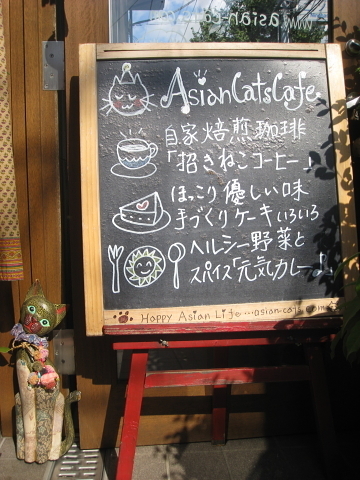 www.asian-cafe.com
Asian Cats Cafe
自家焙煎珈琲
「招きねこコーヒー」
ほっこり優しい味
手づくりケーキいろいろ
ヘルシー野菜と
スパイス「元気カレー」
Happy Asian Life...asian-cafe.com